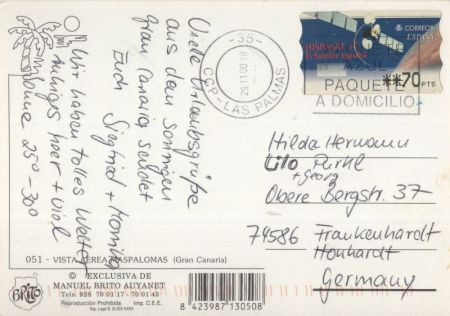 Viele Urlaubsgrüße
aus dem sonnigen
Gran Canaria sendet
Euch Sigfrid + Monika
Wir haben tolles Wetter
ruhiges Meer + viel
Sonne 25°-30°
-35-
29.11.00 18
CCP-LAS PALMAS
HISPASAT 1C
El Satélite Español
CORREOS
ESPAÑA
**70 PTS
AZUL
PAQUETE
A DOMICILIO
Hilda Hermann
Lilo Pürkl
+ Georg
Obere Bergstr. 37
74586 Frankenhardt
Honhardt
Germany
051 - VISTA AEREA MASPALOMAS (Gran Canaria)
BRITO
© EXCLUSIVA DE
MANUEL BRITO AUYANET
Telfs. 928 70 01 17 - 70 01 43
Reproducción Prohibida Imp. C.E.E.
8 423987 130508